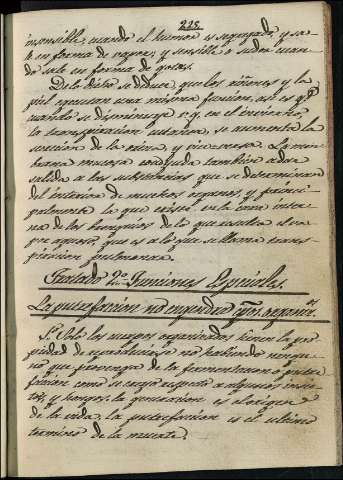 225
insensible, cuando el humor es segregado y sa-
le en forma de vapor; y sensible o sudor cuan-
do sale en forma de gotas.
De lo dicho se deduce, que los riñones y la
piel ejecutan una misma funcion, asi es q.e
cuando se disminuye v. g. en el invierno,
la transpiracion cutanea, se aumenta la
secrecion de la orina, y vice-versa. La mem-
brana mucosa coadyuda tambien a dar
salida a las substancias que se determinan
del interior de muchos organos, y princi-
palmente la que viste en la cara inter-
na de los bronquios de lo que resulta el va-
por acuoso, que es a lo que se llama trans-
piracion pulmonar.
Tratado 2.o Funciones Especiales.
La putrefaccion no engendra cpos. organis.os
S. Volo los cuerpos organizados tienen la pro-
piedad de reproducirse no habiendo ningu-
no que provenga de la fermentacion o putre-
faccion como se creyó respecto a algunos insec-
tos, y hongos. La generacion es el origen
de la vida, la putrefaccion es el ultimo
termino de la muerte.